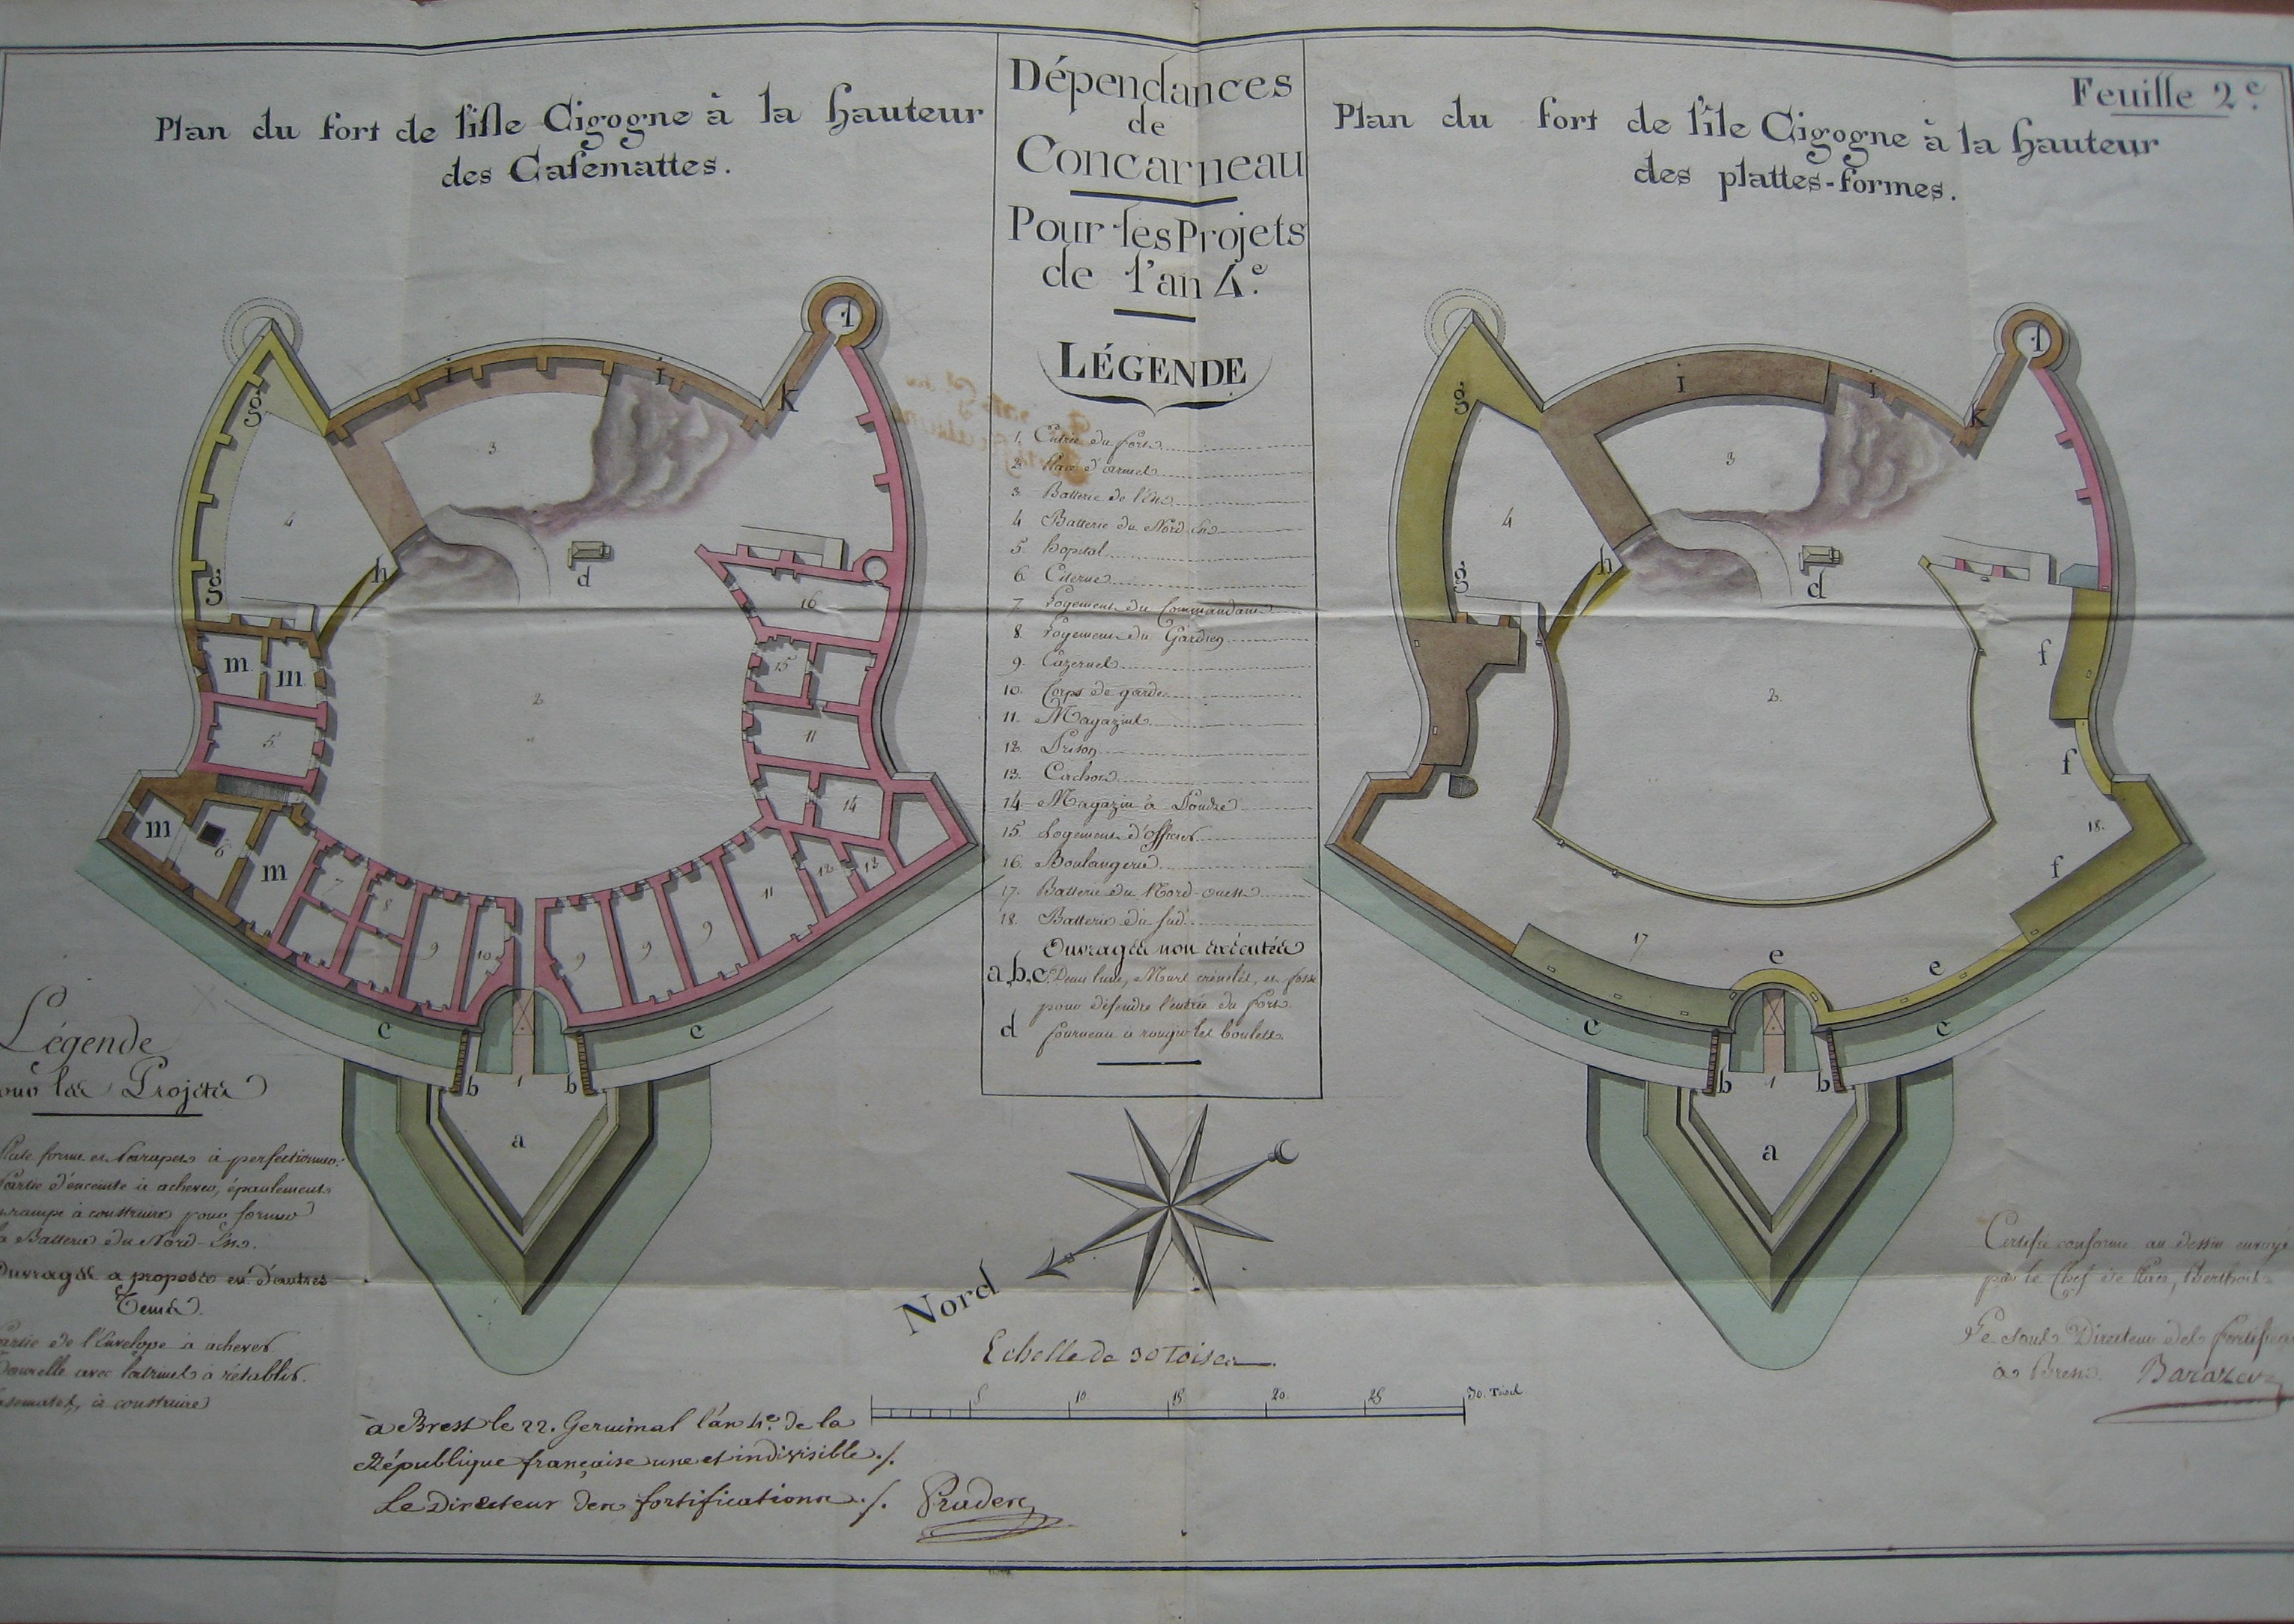 Feuille 2e.
Plan du fort de l'isle Cigogne à la hauteur
des Casemattes.
Dépendances
de
Concarneau
Pour les Projets
de l'an 4e.
LÉGENDE
1. Entrée du fort
2. Place d'armes
3. Batterie de l'Est
4. Batterie du Nord-Est
5. hopital
6. Citerne
7. Logement du Commandant
8. Logement du Gardien
9. Cazernes
10. Corps de garde
11. Magazins
12. Prison
13. Cachot
14. Magazin à Poudre
15. Logement d'officiers
16. Boulangerie
17. Batterie du Nord-ouest
18. Batterie du Sud
Ouvrages non exécutés
a,b,c. Demi lune, Murs crénelés, et fossé
pour défendre l'entrée du fort.
d fourneau à rougir les boulets.
Plan du fort de l'île Cigogne à la hauteur
des plattes-formes.
l
i i
K
g
3
4
h
d
g
16
m m
15
2
5
11
14
m
6
m
7
8
9
10
9
9
9
11
12
13
c c
b 1 b
a
l
i
i
K
g
3
4
h
d
g
f
2.
f
18.
f
17
e
e
c c
b 1 b
a
Légende
pour les Projets
Plate forme et Parapets à perfectionner.
Partie d'enceinte à achever, épaulement
rampe à construire pour former
la Batterie du Nord-Est.
Ouvrages a proposer en d'autres
Tems.
Partie de l'Envelope à achever
Tourelle avec latrines à rétablir.
Casemates, à construire
Nord
Echelle de 30 Toises
5. 10 15 20 25 30. Toises
à Brest le 22. Germinal l'an 4e. de la
République française une et indivisible ./.
Le Directeur des fortifications ./.
Certifié conforme au dessin envoyé
par le Chef de
Le Sous Directeur des fortifica
à Brest.